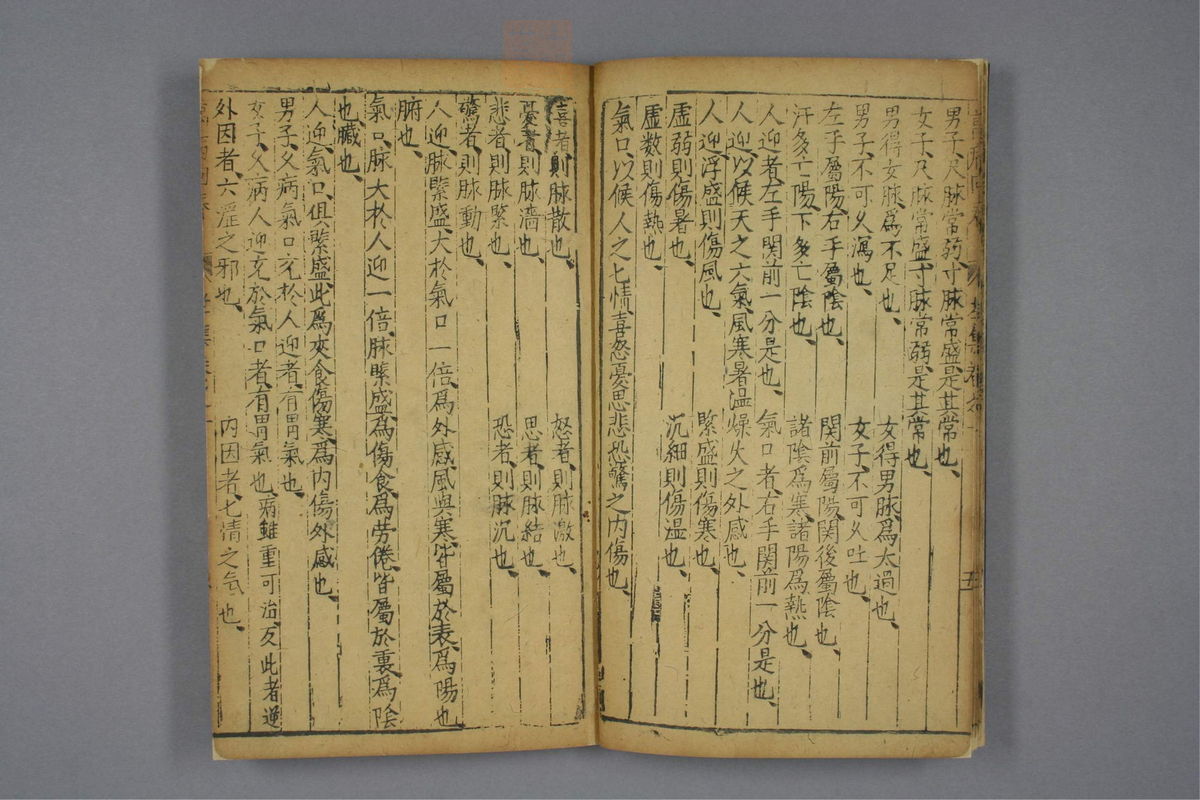 男子、尺脉常弱、寸脉常盛、是其常也、
女子、尺脉常盛、寸脉常弱、是其常也、
男得女脉、爲不足也、　女得男脉、爲太過也、
男子、不可久瀉也、　女子、不可久吐也、
左手屬陽、右手屬陰也、　関前屬陽、関後屬陰也、
汗多亡陽、下多亡陰也、　諸陰爲寒、諸陽爲熱也、
人迎者、左手関前一分是也、　氣口者、右手関前一分是也、
人迎、以候天之六氣、風寒暑温燥火之外感也、
人迎、浮盛則傷風也、　緊盛則傷寒也、
虚弱則傷暑也、　沉細則傷温也、
虚数則傷熱也、
氣口、以候人之七情、喜怒憂思悲恐驚之内傷也、
喜者、則脉散也、　怒者、則脉激也、
憂者、則脉濇也、　思者、則脉結也、
悲者、則脉緊也、　恐者、則脉沉也、
驚者、則脉動也、
人迎、脉緊盛、大於氣口一倍、爲外感風與寒、皆屬於表、爲陽也、
腑也、
氣口、脉大於人迎一倍、脉緊盛、爲傷食、爲劳倦、皆屬於裏、爲陰
也、臓也、
人迎、氣口、俱緊盛、此爲夾食傷寒、爲内傷外感也、
男子、久病氣口充於人迎者、有胃氣也、
女子、久病人迎充於氣口者、有胃氣也、病雖重可治、反此者逆
外因者、六淫之邪也、　内因者、七情之気也、